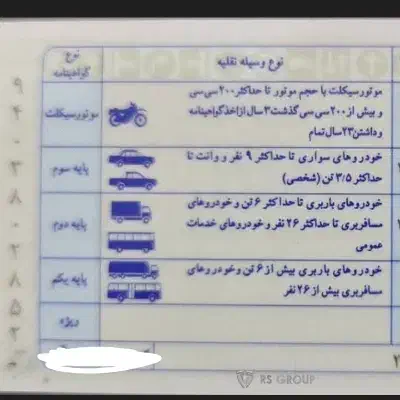 نوع وسیله نقلیه
نوع گواهینامه
موتورسیکلت با حجم موتور تا حداکثر ۲۰۰ سی سی
و بیش از ۲۰۰ سی سی گذشت ۳ سال از اخذ گواهینامه
و داشتن ۲۳ سال تمام
موتورسیکلت
خودروهای سواری تا حداکثر ۹ نفر و وانت تا
حداکثر ۳/۵ تن (شخصی)
پایه سوم
خودروهای باربری تا حداکثر ۶ تن و خودروهای
مسافربری تا حداکثر ۲۶ نفر و خودروهای خدمات
عمومی
پایه دوم
خودروهای باربری بیش از ۶ تن و خودروهای
مسافربری بیش از ۲۶ نفر
پایه یکم
ویژه
RS GROUP